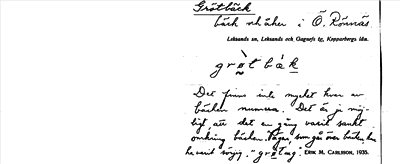 Grötbäck
bäck o. åker i Ö. Rönnäs.
Leksands sn, Leksands och Gagnefs tg, Kopparbergs län.
grøt bäk
Det finns inte mycket kvar av
bäcken numera. Det är ju möj-
ligt att det en gång varit sankt
omkring bäcken. Vägen som går över bäcken, kan
ha varit sörjig, "grötug". ERIK M. CARLSSON, 1935.